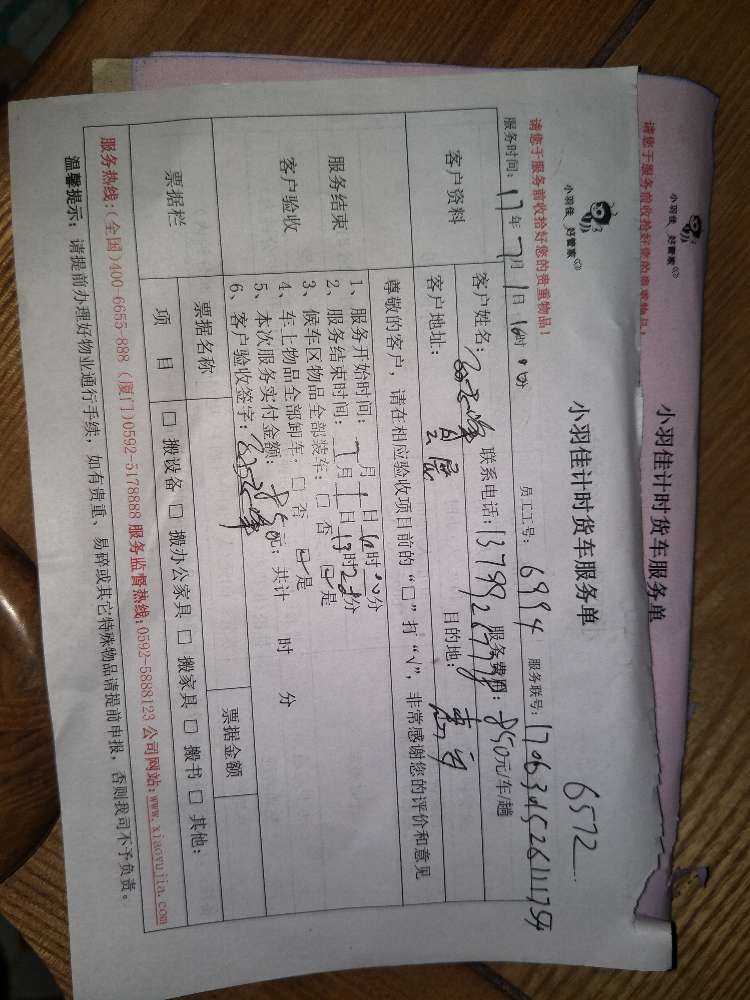 小羽佳 好管家
小羽佳计时货车服务单
6572
请您于服务前收拾好您的贵重物品！
服务时间：17年7月1日10时00分 员工工号：6994 服务联号：
客户资料
客户姓名： 联系电话： 服务费用：850元/车/趟
客户地址： 目的地：
尊敬的客户，请在相应验收项目前的“□”打“√”，非常感谢您的评价和意见
服务结束
客户验收
1、服务开始时间：7月1日10时00分
2、服务结束时间：7月1日13时25分
3、候车区物品全部装车：□ 否 ☑是
4、车上物品全部卸车：□ 否 ☑是
5、本次服务实付金额：850元；共计 时 分
6、客户验收签字：
票据栏
票据名称 票据金额
项 目 □ 搬设备 □ 搬办公家具 □ 搬家具 □ 搬书 □ 其他：
服务热线：(全国)400-6655-888 (厦门)0592-5178888 服务监督热线：0592-5888123 公司网站：www.xiaoyujia.com
温馨提示：请提前办理好物业通行手续，如有贵重、易碎或其它特殊物品请提前申报，否则我司不予负责。
小羽佳 好管家
小羽佳计时货车服务单
请您于服务前收拾好您的贵重物品！